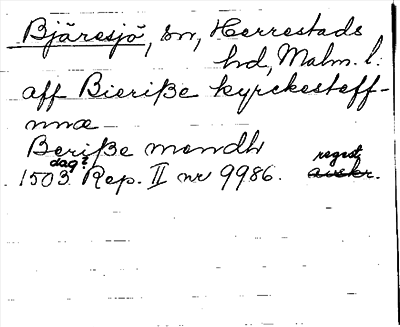 Bjäresjö, sn, Herrestads
hd, Malm. l.
aff Bieriße kyrckesteff-
nnæ
Beriße mondh
dag? regest
1503. Rep. II nr 9986. avskr.